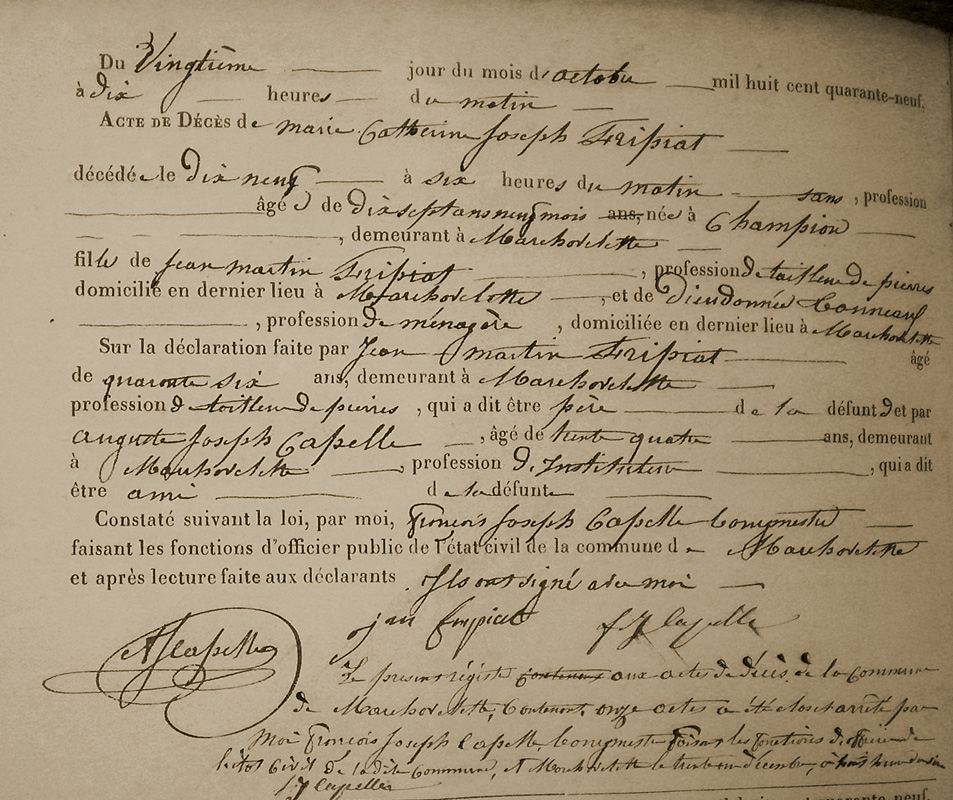 Du Vingtième jour du mois d'octobre mil huit cent quarante-neuf,
à dix heures du matin
ACTE DE DÉCÈS de marie Catherine Joseph Fripiat
décédée le dix neuf à six heures du matin sans, profession
âgée de dix sept ans neuf mois ans, née à Champion
, demeurant à Marchovelette
fille de jean martin Fripiat, profession de tailleur de pierres
domicilié en dernier lieu à Marchovelette, et de Dieudonnée
, profession de ménagère, domiciliée en dernier lieu à Marchovelette
Sur la déclaration faite par Jean martin Fripiat âgé
de quarante six ans, demeurant à Marchovelette
profession de tailleur de pierres, qui a dit être père de la défunte et par
auguste Joseph Capelle, âgé de trente quatre ans, demeurant
à Marchovelette, profession d'Instituteur, qui a dit
être ami de la défunte
Constaté suivant la loi, par moi, François Joseph Capelle bourgmestre
faisant les fonctions d'officier public de l'état civil de la commune de Marchovelette
et après lecture faite aux déclarants Ils ont signé avec moi
jean Fripiat f J Capelle
AJCapelle
Le present régistre aux actes de décès de la Commune
de Marchovelette, Contenant onze actes a été clos et arrêté par
Moi François Joseph Capelle, bourgmestre faisant les fonctions d'officier de
l'état Civil de la dite Commune, à Marchovelette le trente un décembre, à
f J Capelle